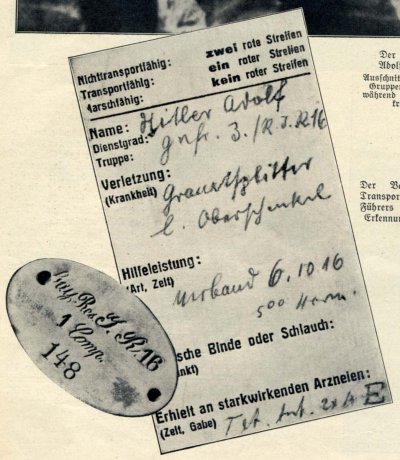 Nichttransportfähig: zwei rote Streifen
Transportfähig: ein roter Streifen
Marschfähig: kein roter Streifen
Name: Hitler Adolf
Dienstgrad: Gefr. 3./R.I.R.16
Truppe:
Verletzung:
(Krankheit) Granatsplitter
l. Oberschenkel
Hilfeleistung:
(Art, Zeit) Verband 6.10.16
5⁰⁰
ische Binde oder Schlauch:
nkt)
Erhielt an starkwirkenden Arzneien:
(Zeit, Gabe)
E
Bay. Res. I. R. 16
1 Comp.
148
Der
Adol
Ausschnitt
Gruppen
während
Der
Transpor
Führers
Erkennun